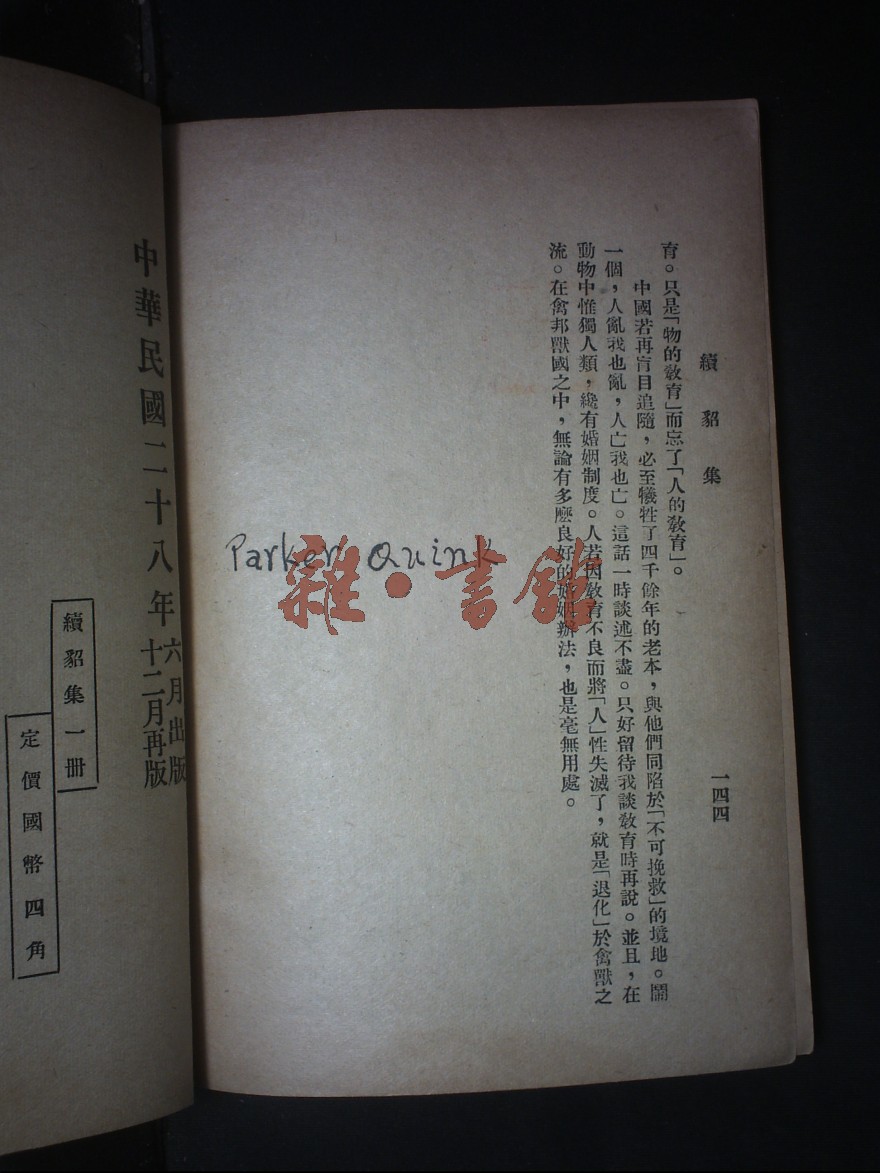 續貂集
一四四
育。只是「物的敎育」而忘了「人的敎育」。
中國若再盲目追隨，必至犧牲了四千餘年的老本，與他們同陷於「不可挽救」的境地。鬧
一個，人亂我也亂，人亡我也亡。這話一時談述不盡。只好留待我談敎育時再說。並且，在
動物中惟獨人類，纔有婚姻制度。人若因敎育不良而將「人」性失滅了，就是「退化」於禽獸之
流。在禽邦獸國之中，無論有多麽良好的婚姻辦法，也是毫無用處。
Parker Quink
雜·書館
中華民國二十八年六月出版
十二月再版
續貂集一册
定價國幣四角